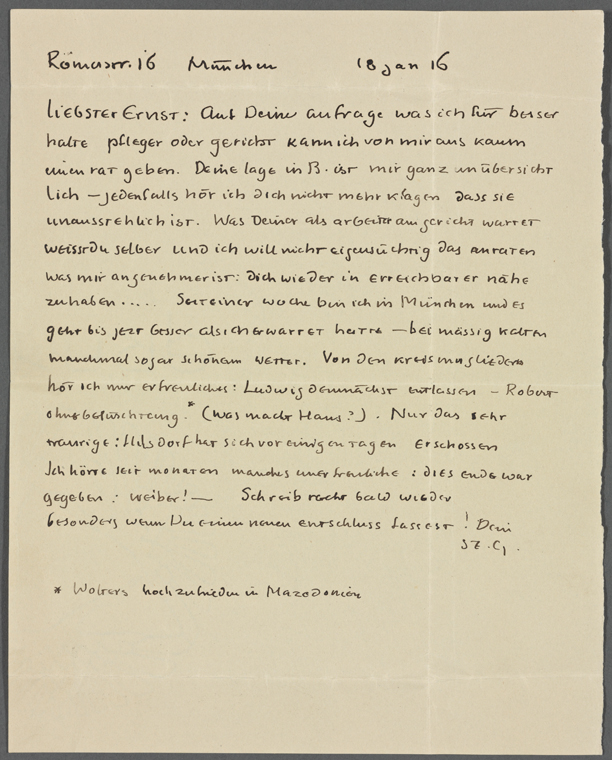 Römerstr. 16 München 18 jan 16
Liebster Ernst: Auf Deine anfrage was ich für besser
halte pfleger oder gericht kann ich von mir aus kaum
einen rat geben. Deine lage in B. ist mir ganz unübersicht
lich – jedenfalls hör ich dich nicht mehr klagen dass sie
unausstehlich ist. Was Deiner als arbeit am gericht wartet
weisst du selber und ich will nicht eigensüchtig das anraten
was mir angenehmer ist: dich wieder in erreichbarer nähe
zu haben ..... Seit einer woche bin ich in München und es
geht bis jezt besser als ich erwartet hatte – bei mässig kaltem
manchmal sogar schönem wetter. Von den kreismitgliedern
hör ich nur erfreuliches: Ludwig demnächst entlassen – Robert
ohne befürchtung.* (Was macht Hans?). Nur das sehr
traurige: Hilsdorf hat sich vor einigen tagen erschossen
Ich hörte seit monaten manches unerfreuliche: dies ende war
gegeben: weiber! — Schreib recht bald wieder
besonders wenn Du einen neuen entschluss fassest! Dein
ST. G.
* Wolters hochzufrieden in Mazedonien